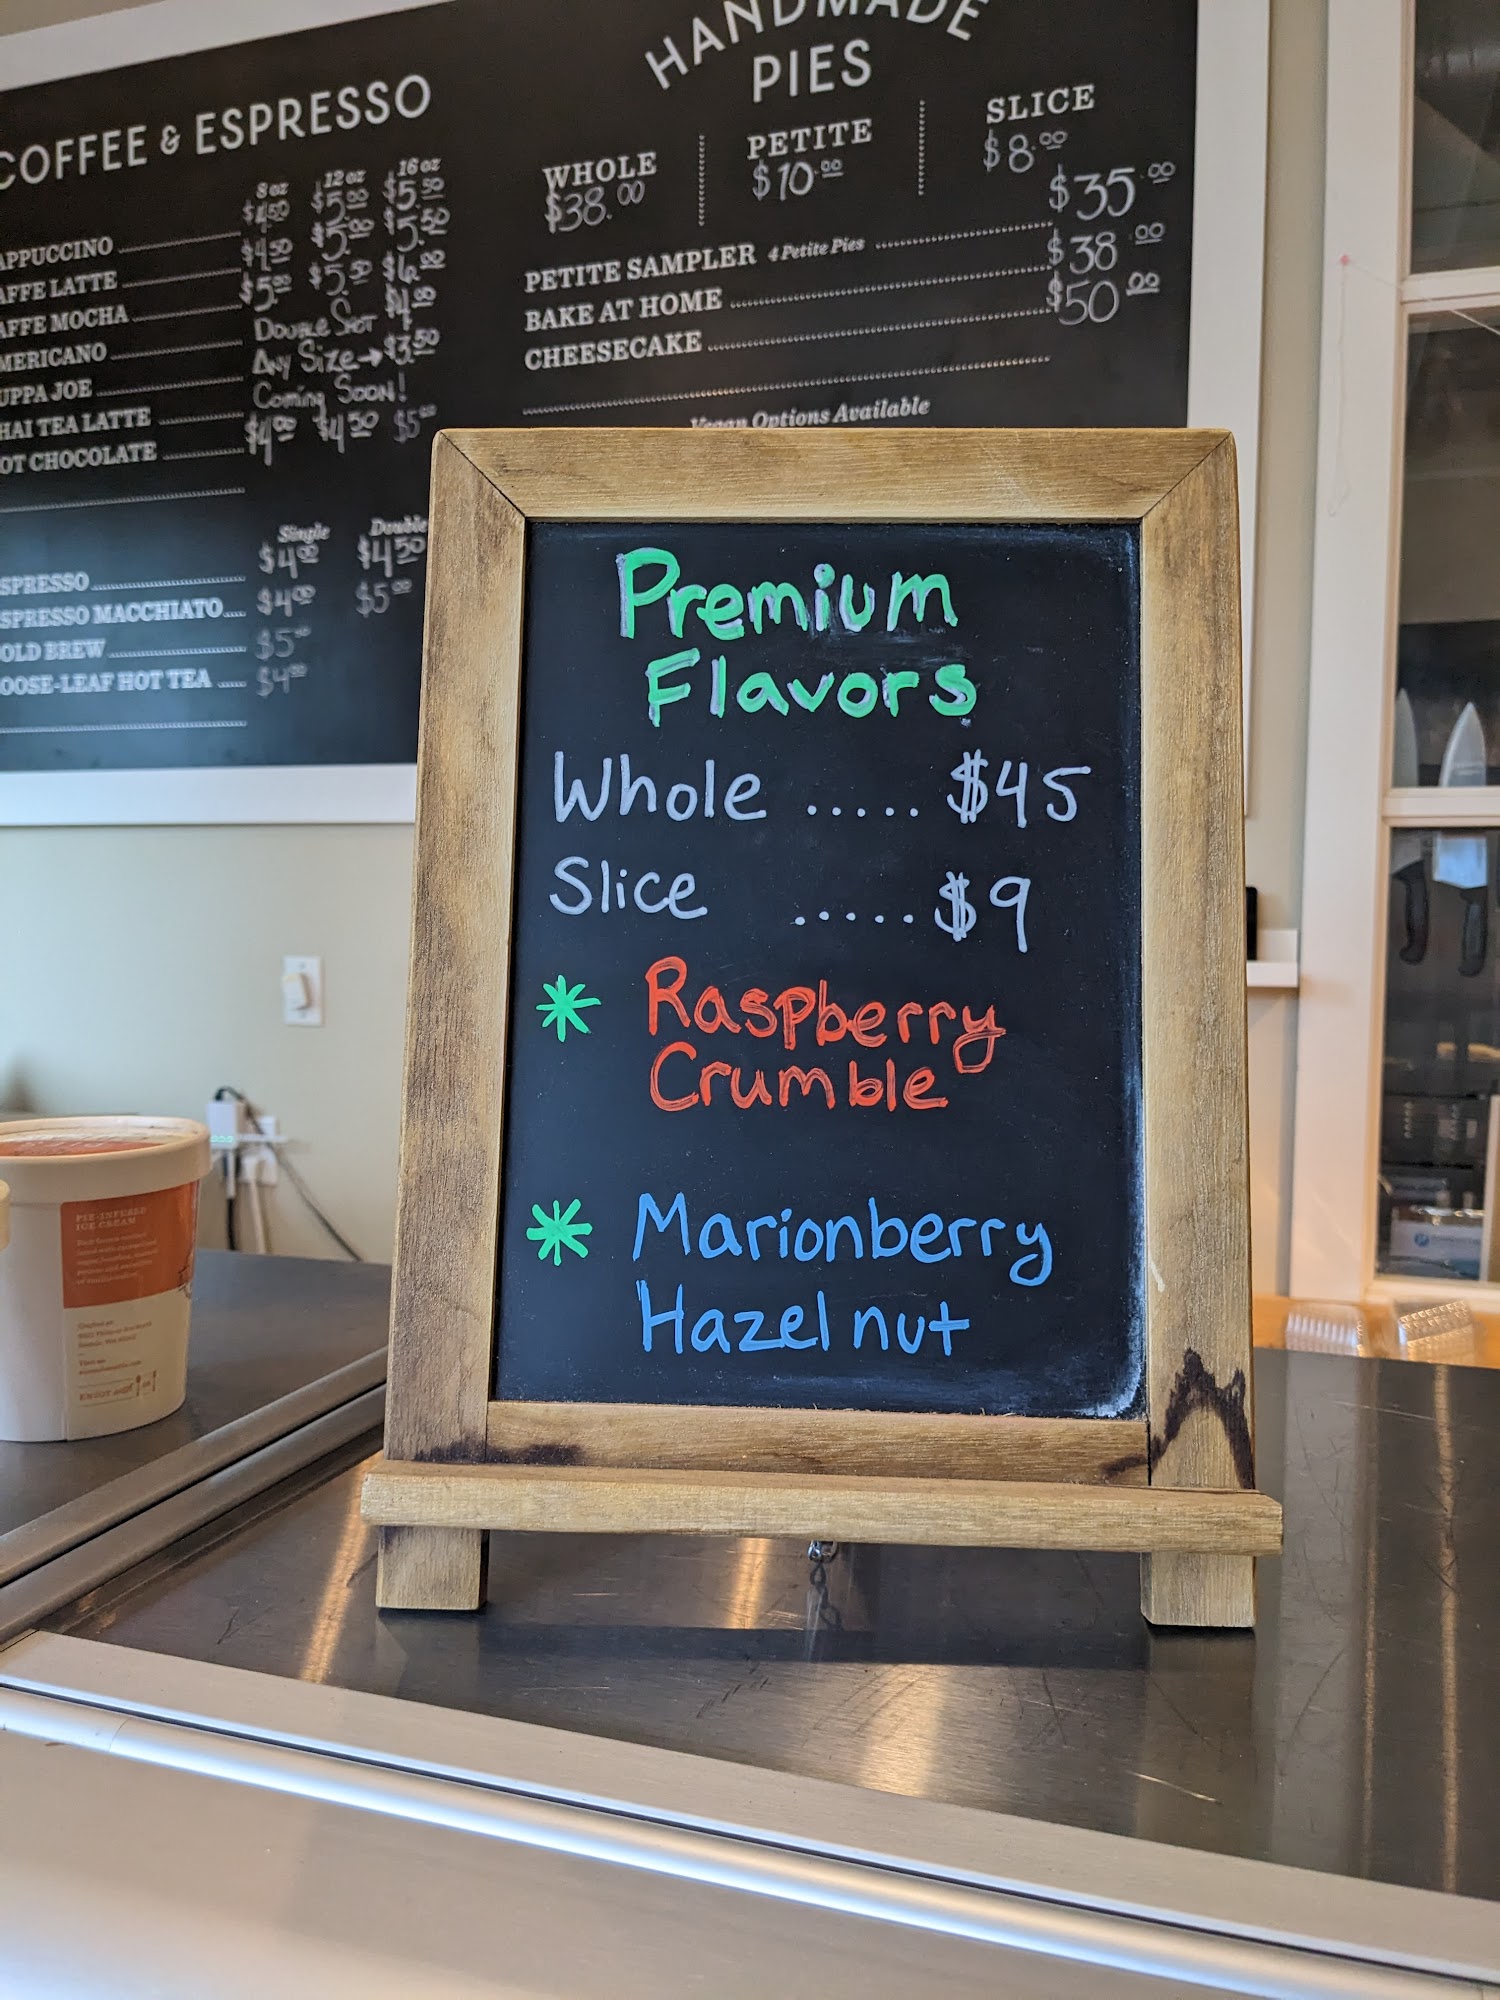 COFFEE & ESPRESSO
8 oz 12 oz 16 oz
APPUCCINO $4.50 $5.00 $5.50
AFFE LATTE $4.50 $5.00 $5.50
AFFE MOCHA $5.00 $5.50 $6.00
MERICANO Double Shot $4.00
UPPA JOE Any Size → $3.50
HAI TEA LATTE Coming Soon!
OT CHOCOLATE $4.00 $4.50 $5.00
Single Double
SPRESSO $4.00 $4.50
SPRESSO MACCHIATO $4.00 $5.00
OLD BREW $5.00
OOSE-LEAF HOT TEA $4.00
HANDMADE
PIES
WHOLE PETITE SLICE
$38.00 $10.00 $8.00
PETITE SAMPLER 4 Petite Pies $35.00
BAKE AT HOME $38.00
CHEESECAKE $50.00
Vegan Options Available
Premium
Flavors
Whole ..... $45
Slice ..... $9
* Raspberry
Crumble
* Marionberry
Hazelnut
PIE-INFUSED
ICE CREAM